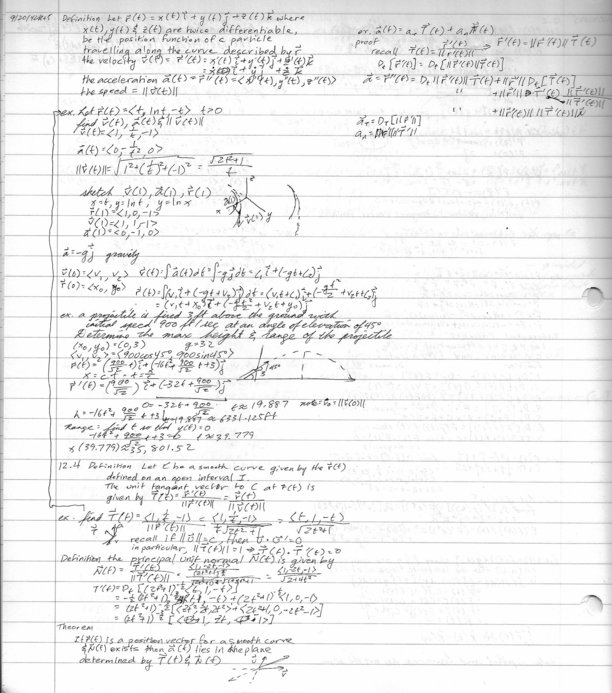 9/20/
Definition Let r⃗(t) = x(t)i⃗ + y(t)j⃗ + z(t)k⃗ where
x(t), y(t) & z(t) are twice differentiable,
be the position function of a particle
travelling along the curve described by r⃗
the velocity v⃗(t) = r⃗'(t) = x'(t)i⃗ + y'(t)j⃗ + z'(t)k⃗
the acceleration a⃗(t) = r⃗''(t) = <x''(t), y''(t), z''(t)>
the speed = ||v⃗(t)||
ex. Let r⃗(t) = <t, ln t, -t> t>0
find v⃗(t), a⃗(t) & ||v⃗(t)||
v⃗(t) = <1, 1/t, -1>
a⃗(t) = <0, -1/t², 0>
||v⃗(t)|| = √(1² + (1/t)² + (-1)²) = √(2t²+1)/t
sketch v⃗(1), a⃗(1), r⃗(1)
x=t, y=ln t, y=ln x
r⃗(1) = <1, 0, -1>
v⃗(1) = <1, 1, -1>
a⃗(1) = <0, -1, 0>
a⃗ = -g j⃗ gravity
v⃗(0) = <v₁, v₂> v⃗(t) = ∫a⃗(t)dt = ∫-g j⃗ dt = c₁i⃗ + (-gt+c₂)j⃗
r⃗(0) = <x₀, y₀> r⃗(t) = ∫(v₁i⃗ + (-gt+v₂)j⃗)dt = (v₁t+c₁)i⃗ + (-gt²/2 + v₂t+c₂)j⃗
= (v₁t+x₀)i⃗ + (-gt²/2 + v₂t+y₀)j⃗
ex. a projectile is fired 3ft above the ground with
initial speed 900 ft/sec at an angle of elevation of 45°
Determine the max height & range of the projectile
(x₀, y₀) = (0, 3) g=32
<v₁, v₂> = <900cos45°, 900sin45°>
r⃗(t) = (900/√2 t)i⃗ + (-16t² + 900/√2 t + 3)j⃗
r⃗'(t) = (900/√2)i⃗ + (-32t + 900/√2)j⃗
0 = -32t + 900/√2 t ≈ 19.887 note v₀ = ||v⃗(0)||
h = -16t² + 900/√2 t + 3 | t=19.887 ≈ 6331.125ft
Range = find t so that y(t)=0
-16t² + 900/√2 t + 3 = 0 t ≈ 39.779
x(39.779) ≈ 801.52
12.4 Definition Let C be a smooth curve given by the r⃗(t)
defined on an open interval I
The unit tangent vector to C at r⃗(t) is
given by T⃗(t) = r⃗'(t)/||r⃗'(t)|| = v⃗(t)/||v⃗(t)||
ex. find T⃗(t) = <1, 1/t, -1>/||r⃗'(t)|| = <1, 1/t, -1>/(1/t √(2t²+1)) = <t, 1, -t>/√(2t²+1)
recall if ||v⃗|| = c, then v⃗·v⃗' = 0
in particular, ||T⃗(t)|| = 1 → T⃗(t)·T⃗'(t) = 0
Definition the principal unit normal N⃗(t) is given by
N⃗(t) = T⃗'(t)/||T⃗'(t)||
T'(t) = Dt[(2t²+1)^-½ <t, 1, -t>]
Theorem
If r⃗(t) is a position vector for a smooth curve
& N⃗(t) exists then a⃗(t) lies in the plane
determined by T⃗(t) & N⃗(t)
or a⃗(t) = a_T T⃗(t) + a_N N⃗(t)
proof
recall T⃗(t) = r⃗'(t)/||r⃗'(t)|| → r⃗'(t) = ||r⃗'(t)|| T⃗(t)
Dt[r⃗'(t)] = Dt[||r⃗'(t)||T⃗(t)]
a⃗ = r⃗''(t) = Dt||r⃗'(t)||T⃗(t) + ||r⃗'(t)|| Dt[T⃗(t)]
" + ||r⃗'(t)|| T⃗'(t) ||T⃗'(t)||/||T⃗'(t)||
" + ||r⃗'(t)|| ||T⃗'(t)||N⃗
a_T = Dt[||r⃗'||]
a_N = ||r⃗'|| ||T⃗'||